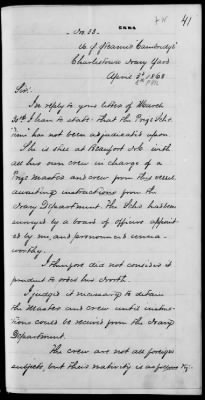 41
No. 33.
U.S. Steamer "Cambridge"
Charlestown Navy Yard
April 3d 1863
Sir:
In reply to your letter of March
30th I have to state that the Prize Schr.
has not been adjudicated upon.
She is still at Beaufort N.C. with
all her own crew in charge of a
Prize master and crew from this vessel
awaiting instructions from the
Navy Department. The Schr. had been
surveyed by a board of officers appoint-
ed by me, and pronounced unsea-
worthy.
I therefore did not consider it
prudent to order her North.
I judged it necessary to detain
the Master and crew until instruc-
tions could be received from the Navy
Department.
The crew are not all foreign
subjects, but their nativity is as follows viz: